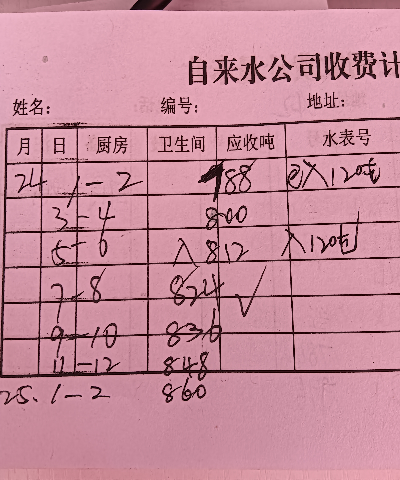 自来水公司收费计
姓名： 编号： 地址：
月 日 厨房 卫生间 应收吨 水表号
24 1-2 788 入120吨
3-4 800
5-6 入 812 入120吨
7-8 824 √
9-10 836
11-12 848
25. 1-2 860